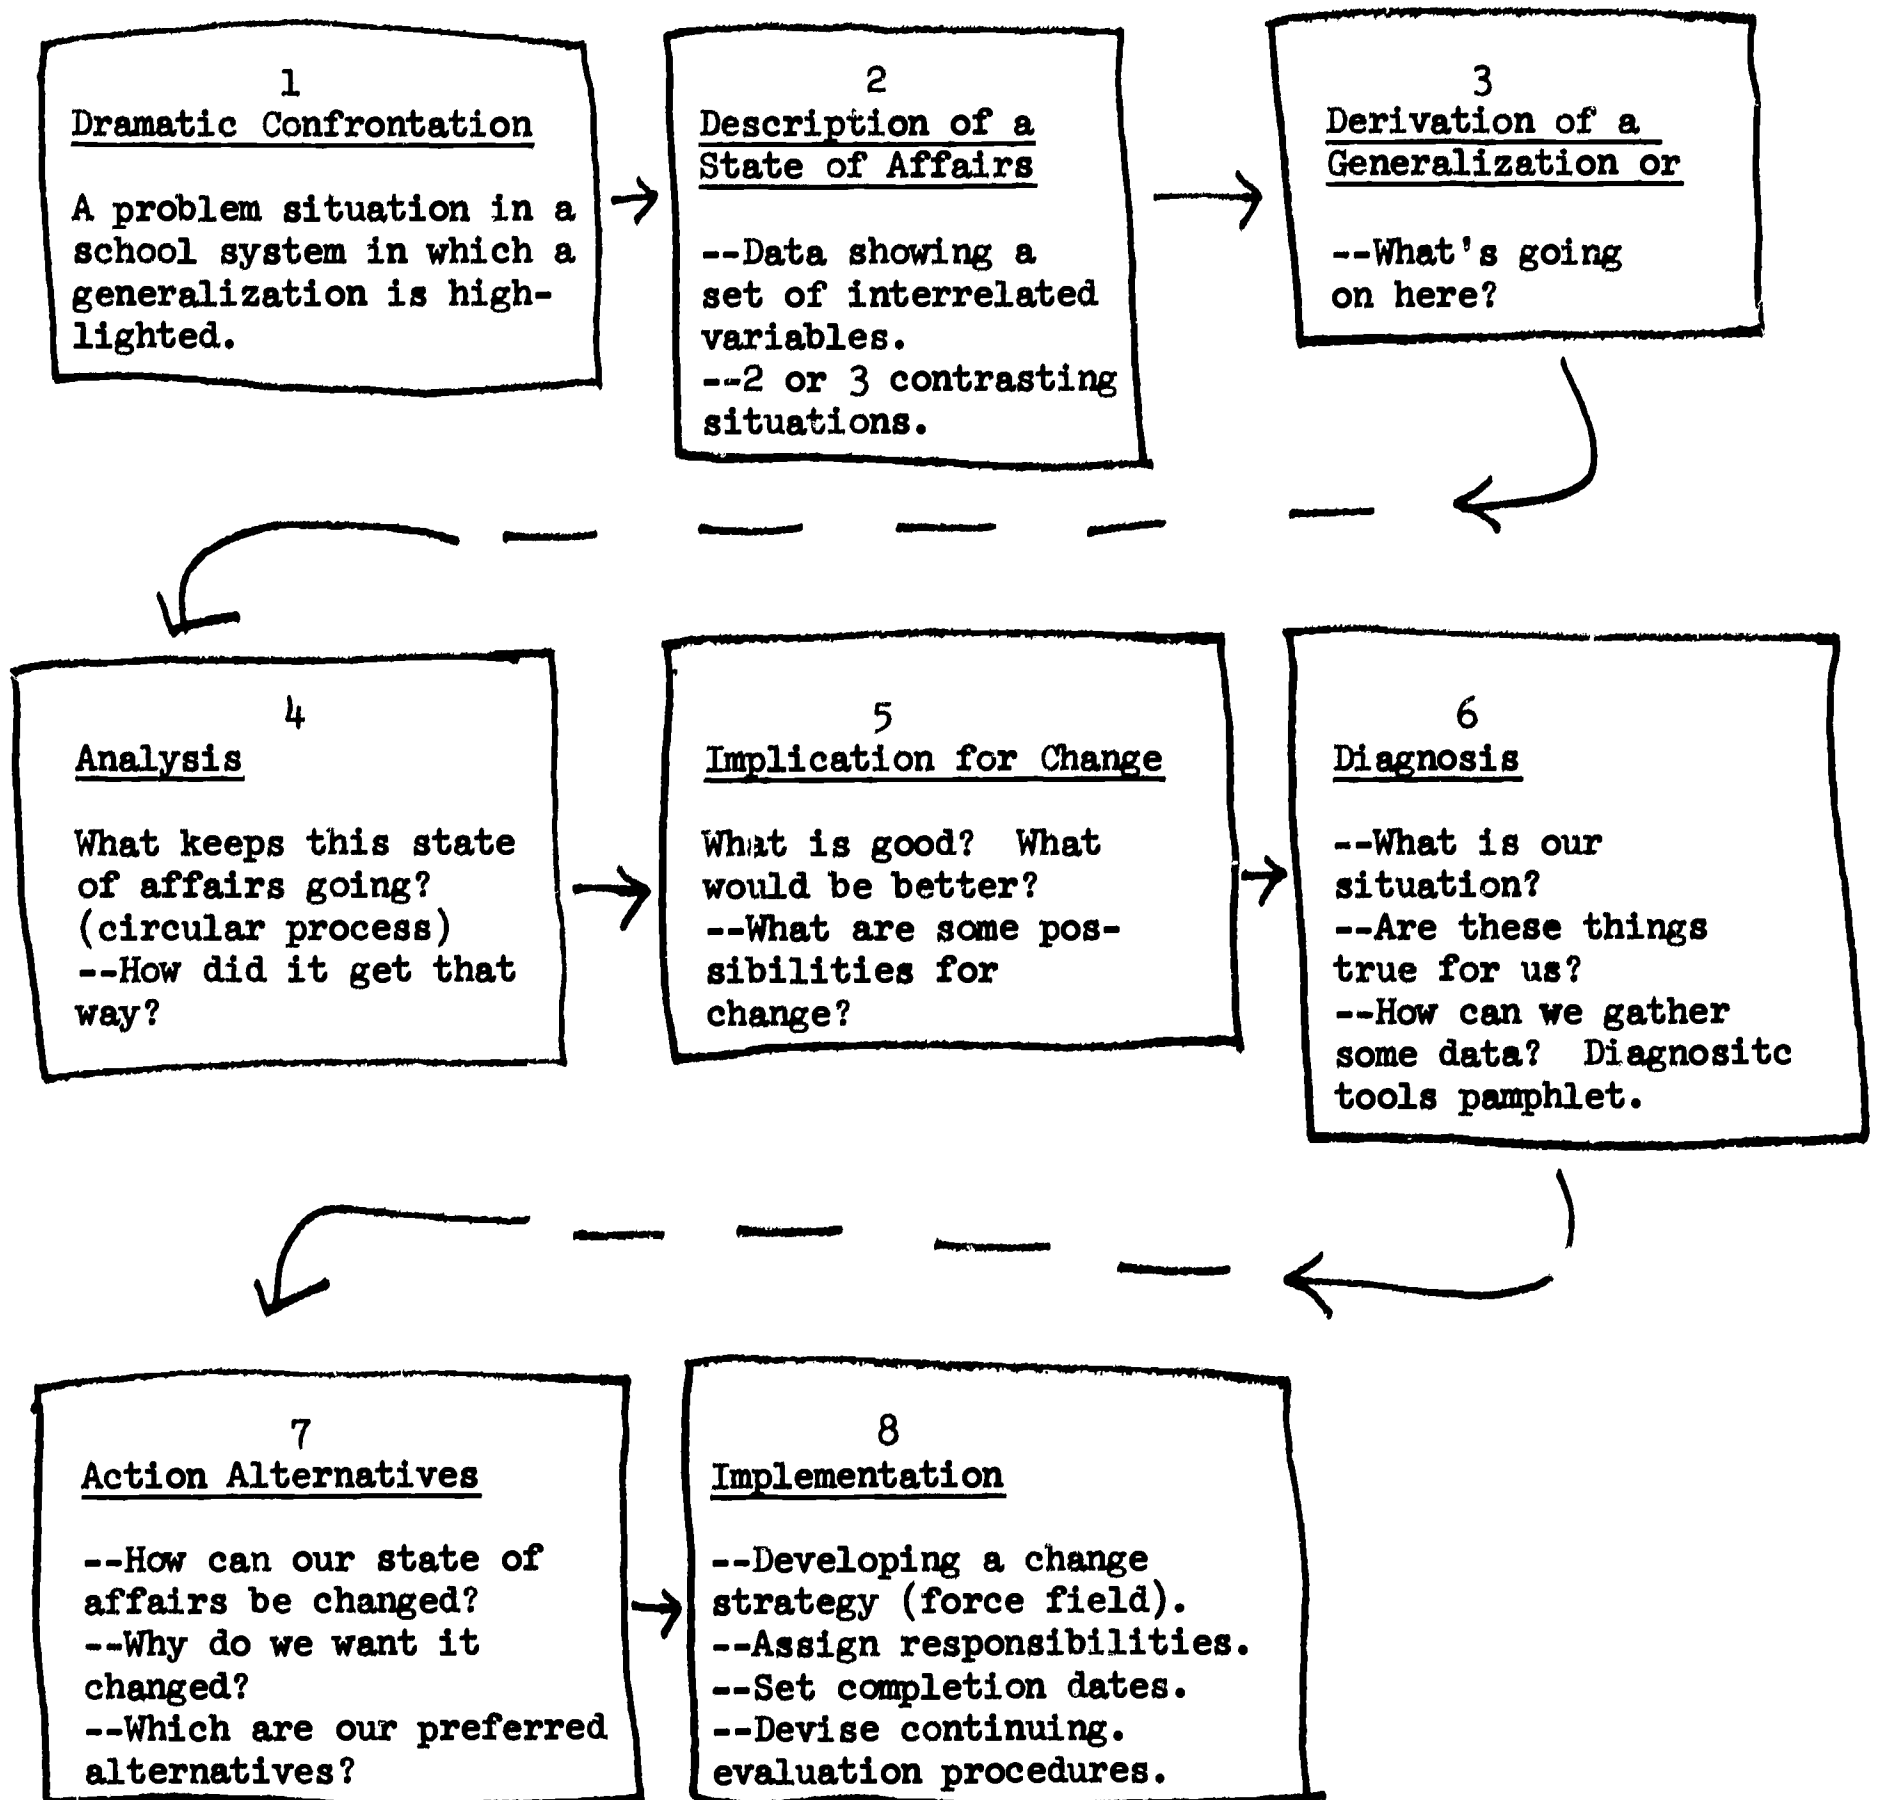 1
Dramatic Confrontation
A problem situation in a
school system in which a
generalization is high-
lighted.
2
Description of a
State of Affairs
--Data showing a
set of interrelated
variables.
--2 or 3 contrasting
situations.
3
Derivation of a
Generalization or
--What's going
on here?
4
Analysis
What keeps this state
of affairs going?
(circular process)
--How did it get that
way?
5
Implication for Change
What is good?  What
would be better?
--What are some pos-
sibilities for
change?
6
Diagnosis
--What is our
situation?
--Are these things
true for us?
--How can we gather
some data?  Diagnositc
tools pamphlet.
7
Action Alternatives
--How can our state of
affairs be changed?
--Why do we want it
changed?
--Which are our preferred
alternatives?
8
Implementation
--Developing a change
strategy (force field).
--Assign responsibilities.
--Set completion dates.
--Devise continuing.
evaluation procedures.